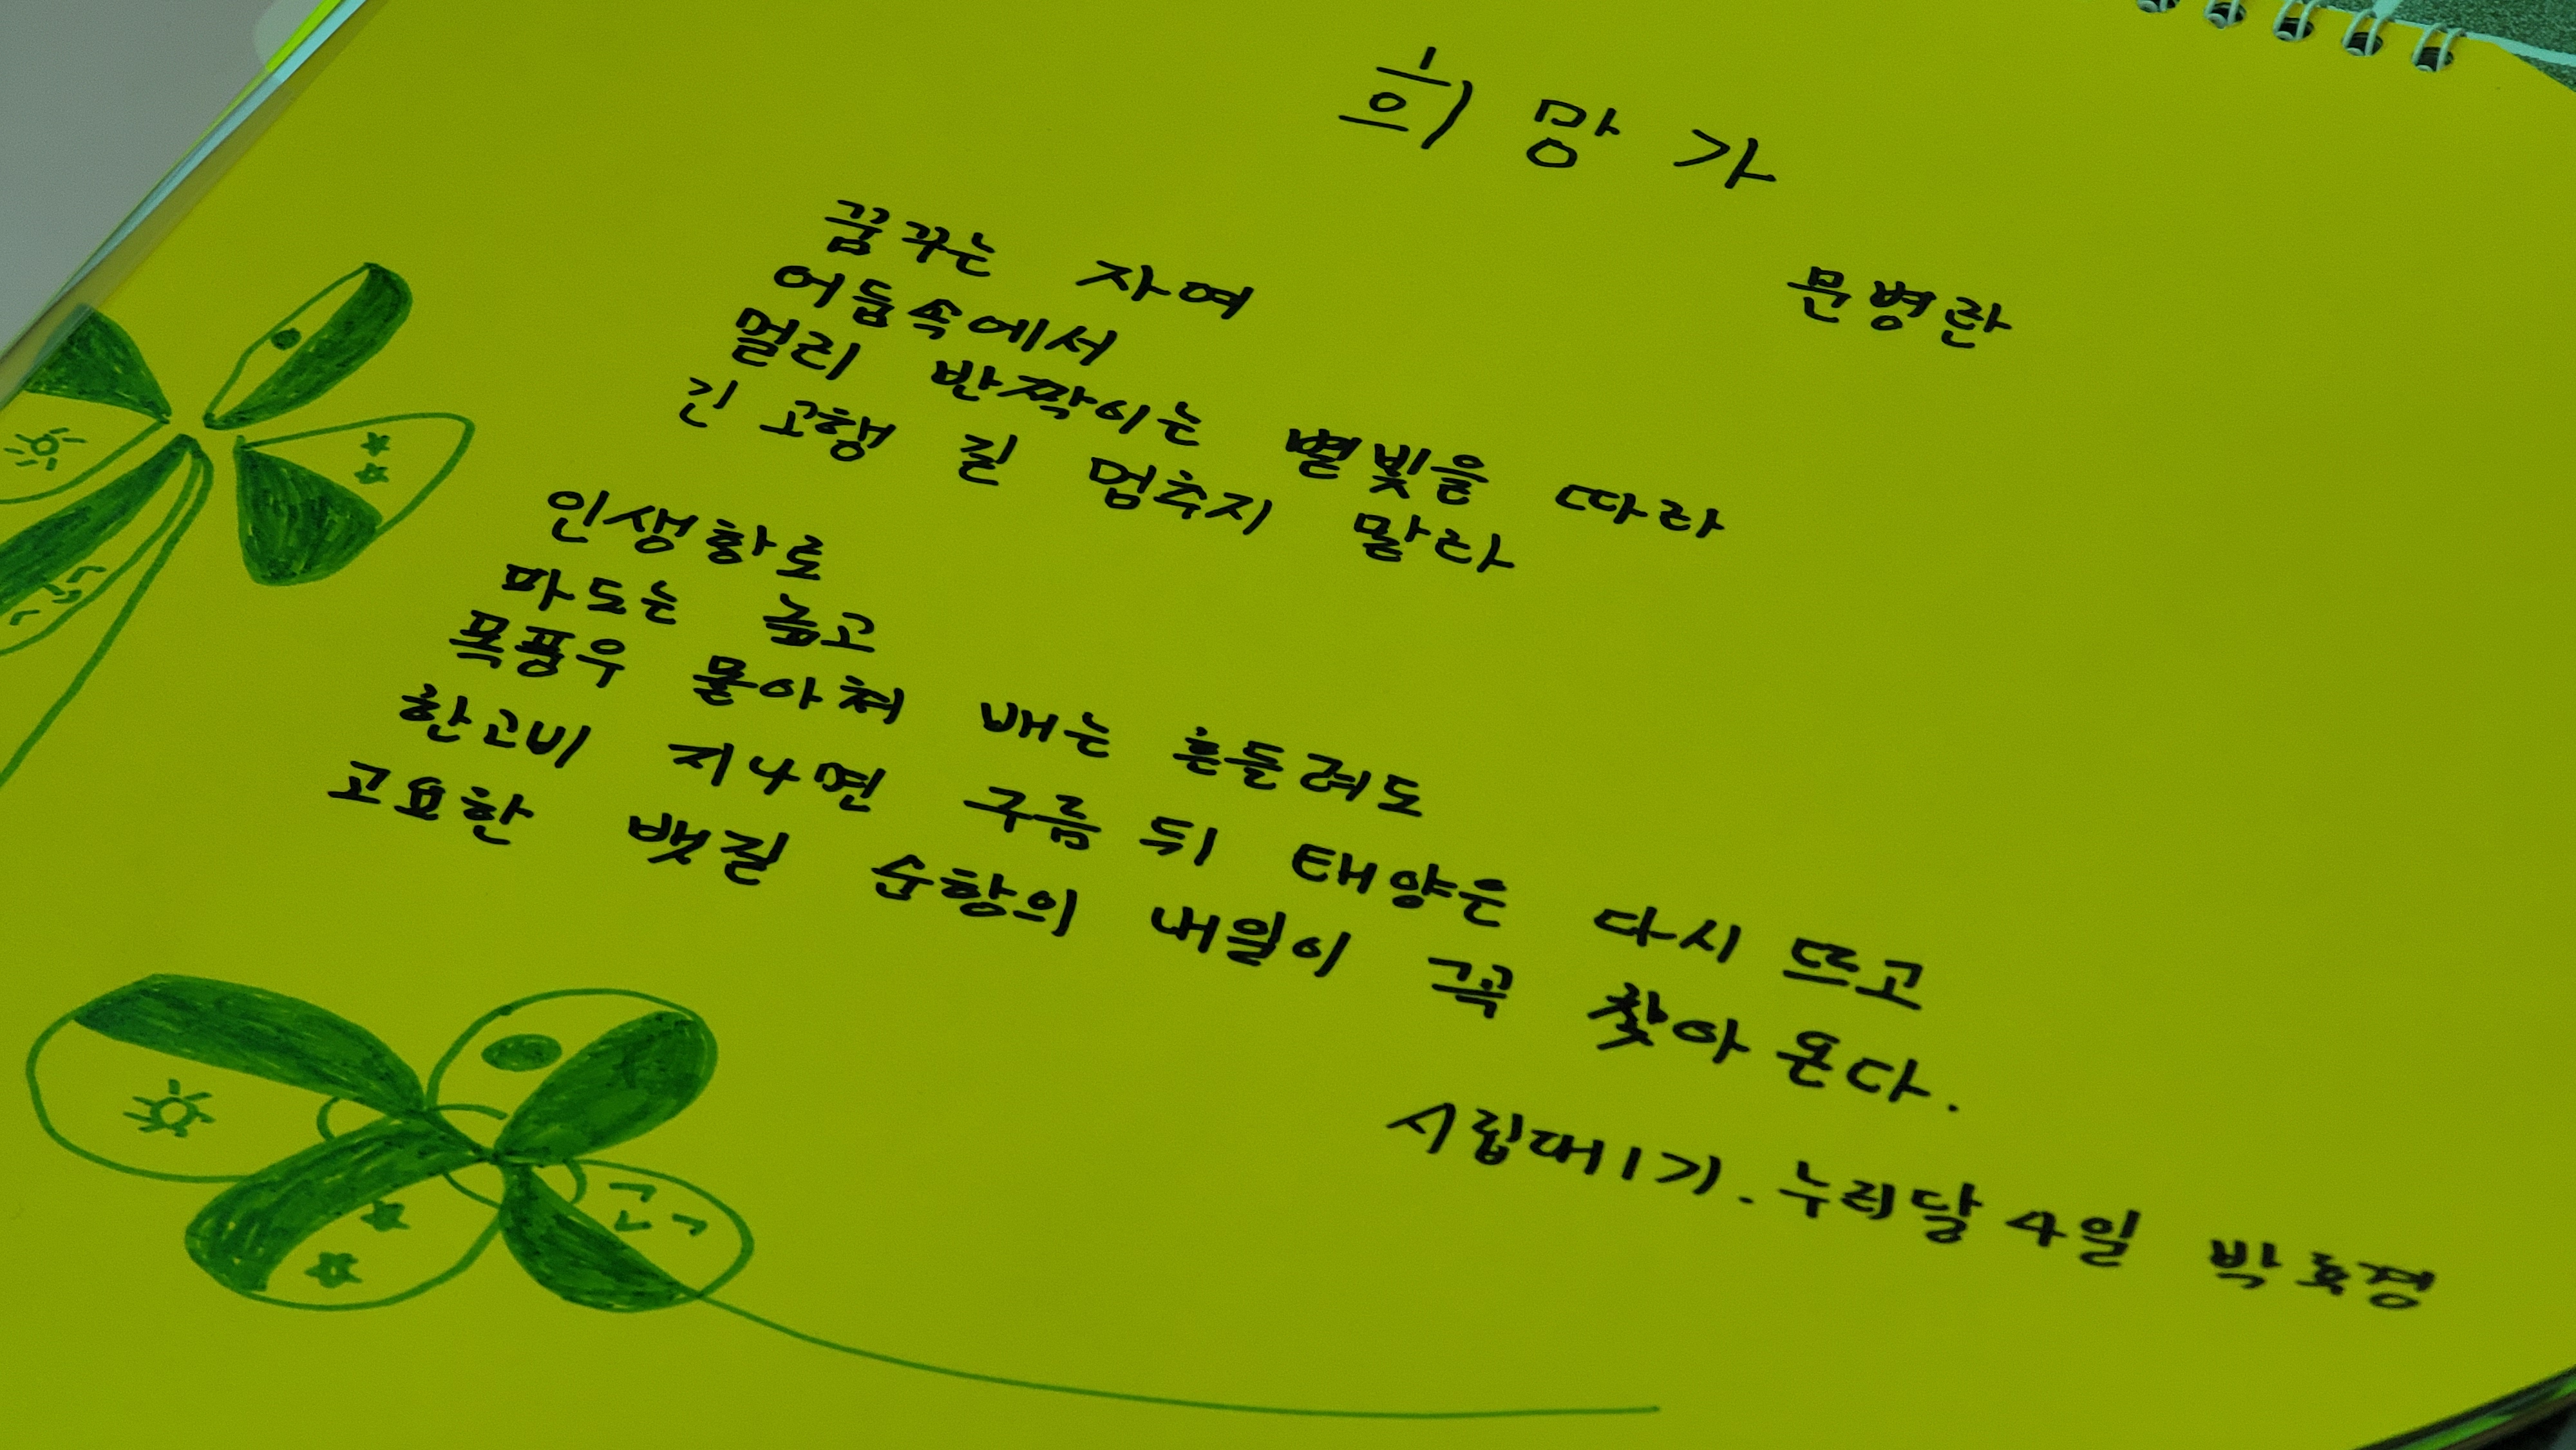 희망가
문병란
꿈꾸는 자여
어둠속에서
멀리 반짝이는 별빛을 따라
긴 고행 길 멈추지 말라
인생항로
파도는 높고
폭풍우 몰아쳐 배는 흔들려도
한고비 지나면 구름 뒤 태양은 다시 뜨고
고요한 뱃길 순항의 내일이 꼭 찾아 온다.
시립대 1기. 누리달 4일 박효경